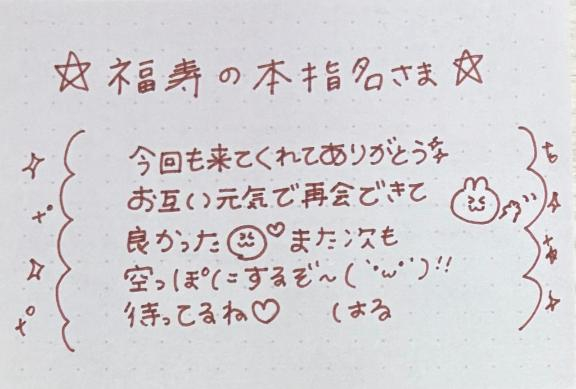 ☆福寿の本指名さま☆
今回も来てくれてありがとう✨
お互い元気で再会できて
良かった♡また次も
空っぽにするぞ〜(`･ω･´)!!
待ってるね♡ はる